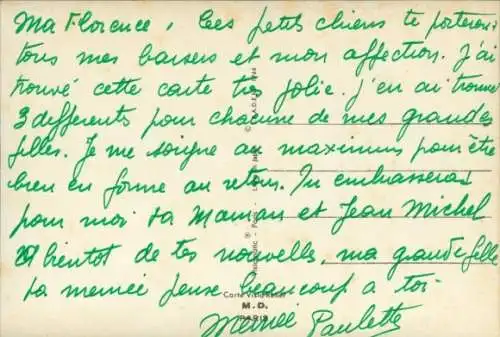 Ma Florence, Ces petits chiens te porteront
tous mes baisers et mon affection. J'ai
trouvé cette carte très jolie. J'en ai trouvé
3 differents pour chacune de mes grandes
filles. Je me soigne au maximum pour être
bien en forme au retour. Tu embrasseras
pour moi ta Maman et Jean Michel
A bientot de tes nouvelles, ma grande fille
ta memée pense beaucoup a toi.
Carte
M.D.
PARIS
Memée Paulette